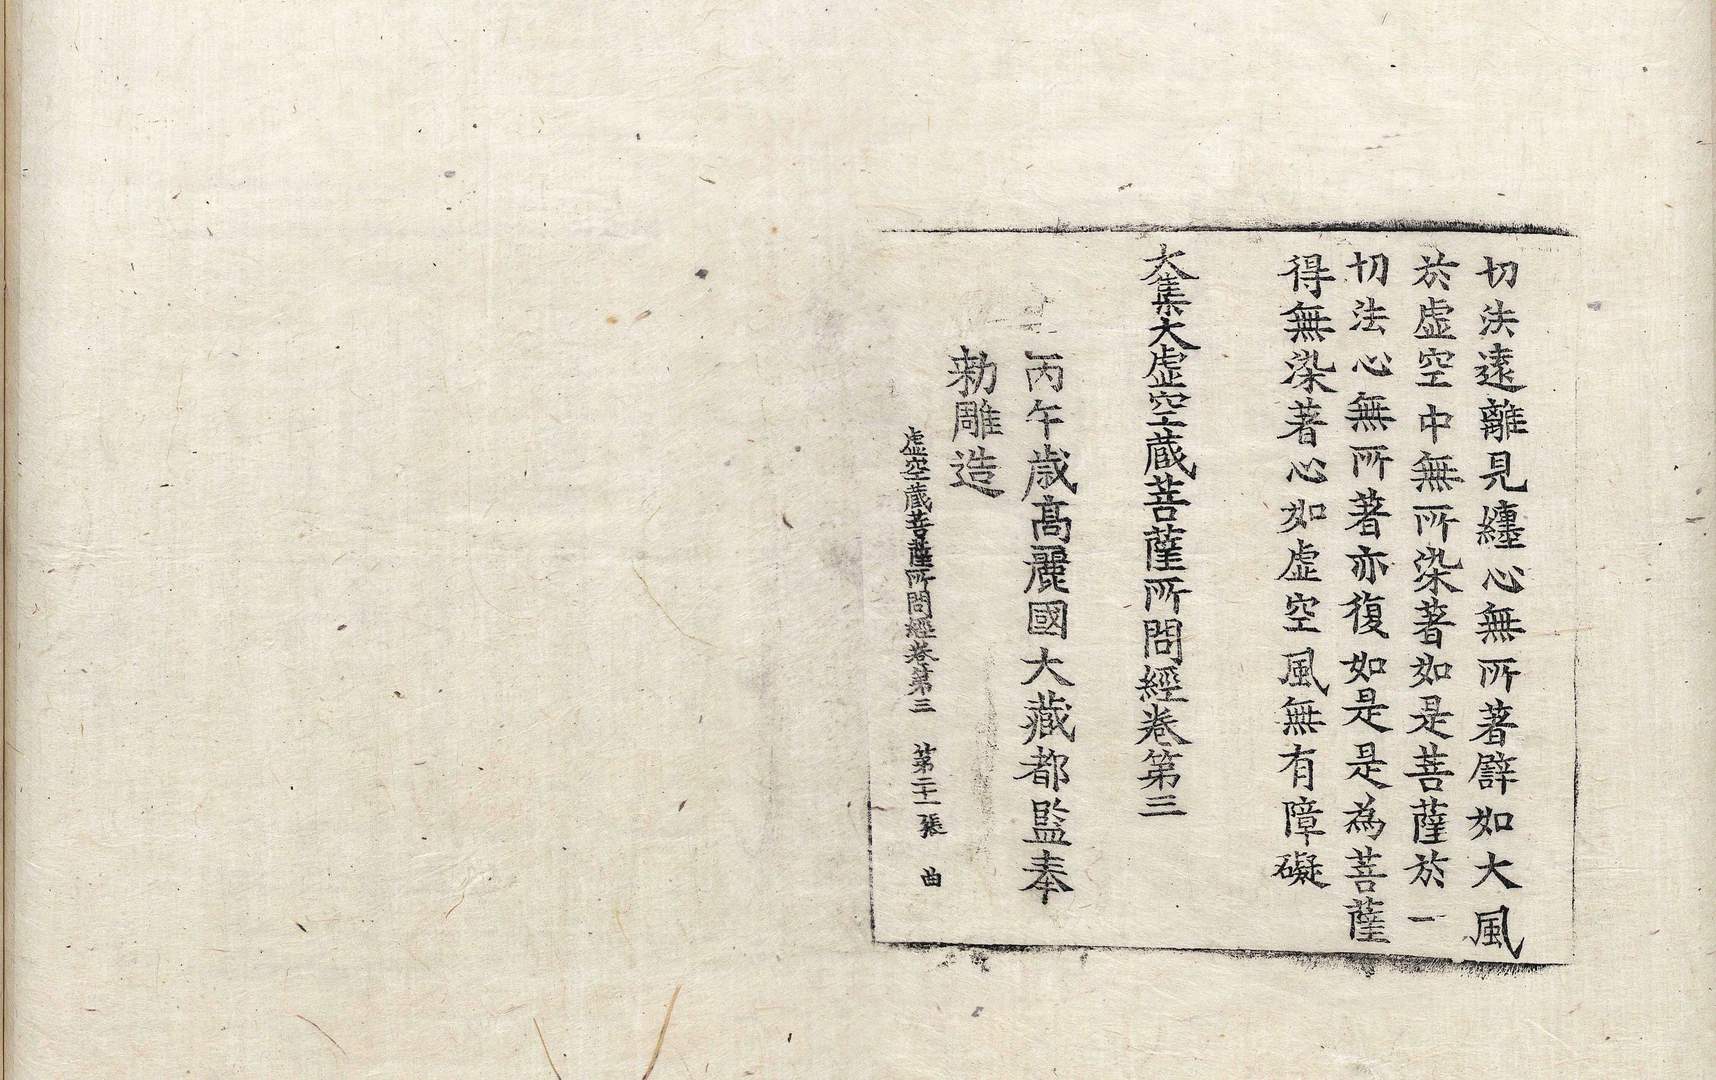 切法遠離見纏心無所著譬如大風
於虛空中無所染著如是菩薩於一
切法心無所著亦復如是是為菩薩
得無染著心如虛空風無有障礙
大集大虛空藏菩薩所問經卷第三
丙午歲高麗國大藏都監奉
勅雕造
虛空藏菩薩所問經卷第三 第二十一張 曲